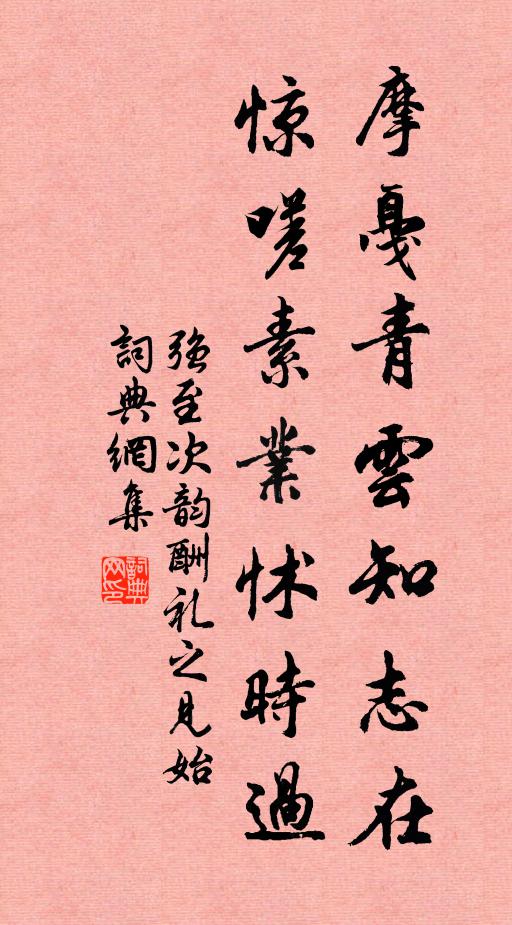 摩戛青雲知志在
惊嗟素業怵時過
強至次韵酬礼之見始
詞典網集
詞典网印